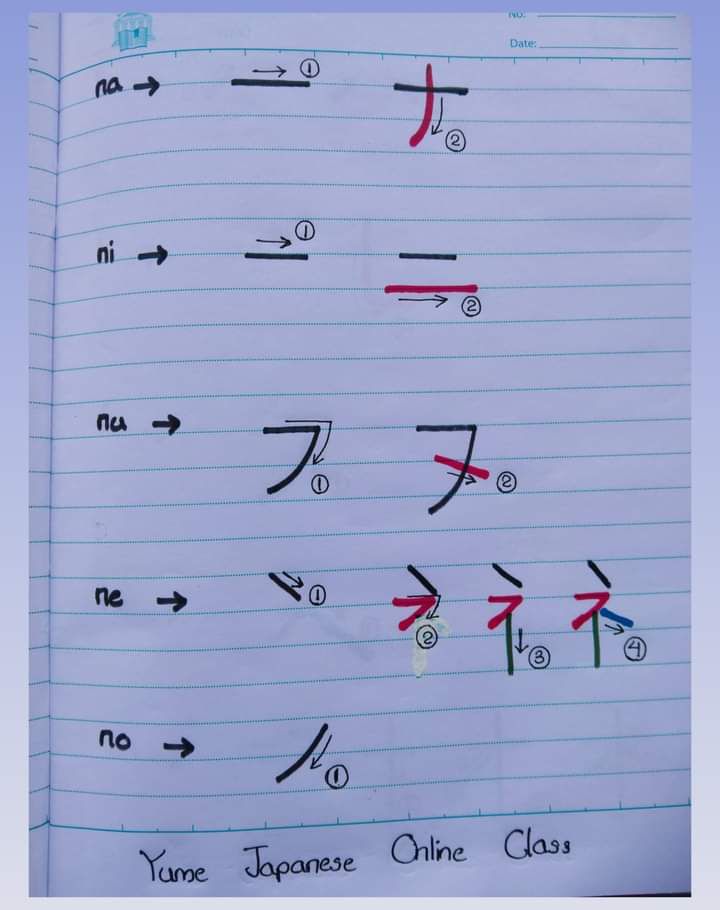 No:
Date:
na → → ① ナ ②
ni → → ① ニ → ②
nu → フ ① ヌ ②
ne → ① ② ③ ネ ④
no → ノ ①
Yume Japanese Online Class